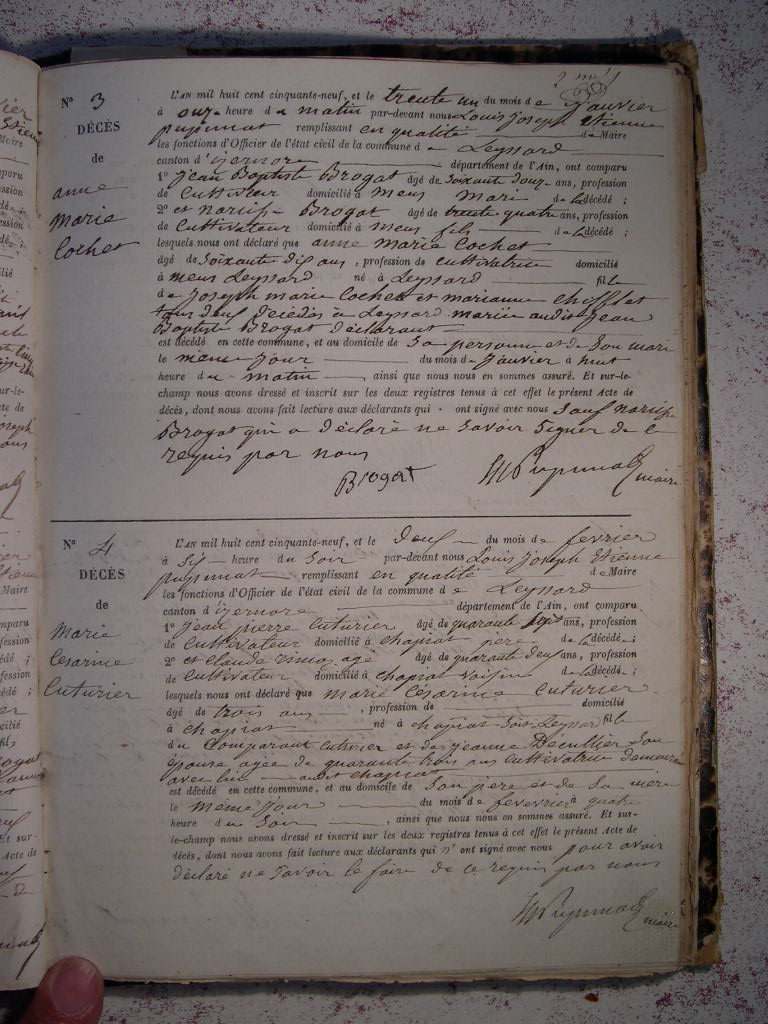 N° 3
DÉCÈS
de
anne
Marie
Cochet
L'AN mil huit cent cinquante-neuf, et le trente un du mois de Janvier
à onze heure du matin par-devant nous Louis Joseph Etienne
pupunat remplissant en qualité de Maire
les fonctions d'Officier de l'état civil de la commune de Leyssard
canton d'izernore département de l'Ain, ont comparu
1° jean Baptiste Brogat âgé de soixante douze ans, profession
de Cultivateur domicilié à Mens mari de la décédé ;
2° et narcisse Brogat âgé de trente quatre ans, profession
de Cultivateur domicilié à Mens fils de la décédé ;
lesquels nous ont déclaré que anne Marie Cochet
âgé de soixante dix ans, profession de cultivatrice domicilié
à mens Leyssard né à Leyssard fille
de Joseph marie Cochet et marianne
tous deux décédés à Leyssard mariée audit jean
Baptiste Brogat déclarant
est décédé en cette commune, et au domicile de Sa personne et de Son mari
le meme jour du mois de Janvier à huit
heure du matin ainsi que nous nous en sommes assuré. Et sur-le-
champ nous avons dressé et inscrit sur les deux registres tenus à cet effet le présent Acte de
décès, dont nous avons fait lecture aux déclarants qui ont signé avec nous Sauf narcisse
Brogat qui a déclaré ne Savoir Signer de ce
requis par nous
Brogat
Pupunat maire
N° 4
DÉCÈS
de
Marie
Cesarine
Cuturier
L'AN mil huit cent cinquante-neuf, et le Deux du mois de fevrier
à Six heure du Soir par-devant nous Louis Joseph Etienne
pupunat remplissant en qualité de Maire
les fonctions d'Officier de l'état civil de la commune de Leyssard
canton d'izernore département de l'Ain, ont comparu
1° jean pierre Cuturier âgé de quarante sept ans, profession
de Cultivateur domicilié à chapiat pere de la décédé ;
2° et Claude âgé de quarante deux ans, profession
de Cultivateur domicilié à chapiat voisin de la décédé ;
lesquels nous ont déclaré que Marie Césarine Cuturier
âgé de trois ans, profession de domicilié
à chapiat né à chapiat sous Leyssard fille
du Comparant Cuturier et de jeanne Décullier Son
épouse agée de quarante trois ans cultivatrice demeurant
avec lui audit chapiat
est décédé en cette commune, et au domicile de Son pere et de Sa mere
le Même jour du mois de feverrier à quatre
heure du Soir, ainsi que nous nous en sommes assuré. Et sur-
le-champ nous avons dressé et inscrit sur les deux registres tenus à cet effet le présent Acte de
décès, dont nous avons fait lecture aux déclarants qui n'ont signé avec nous pour avoir
déclaré ne Savoir le faire de ce requis par nous
Pupunat maire